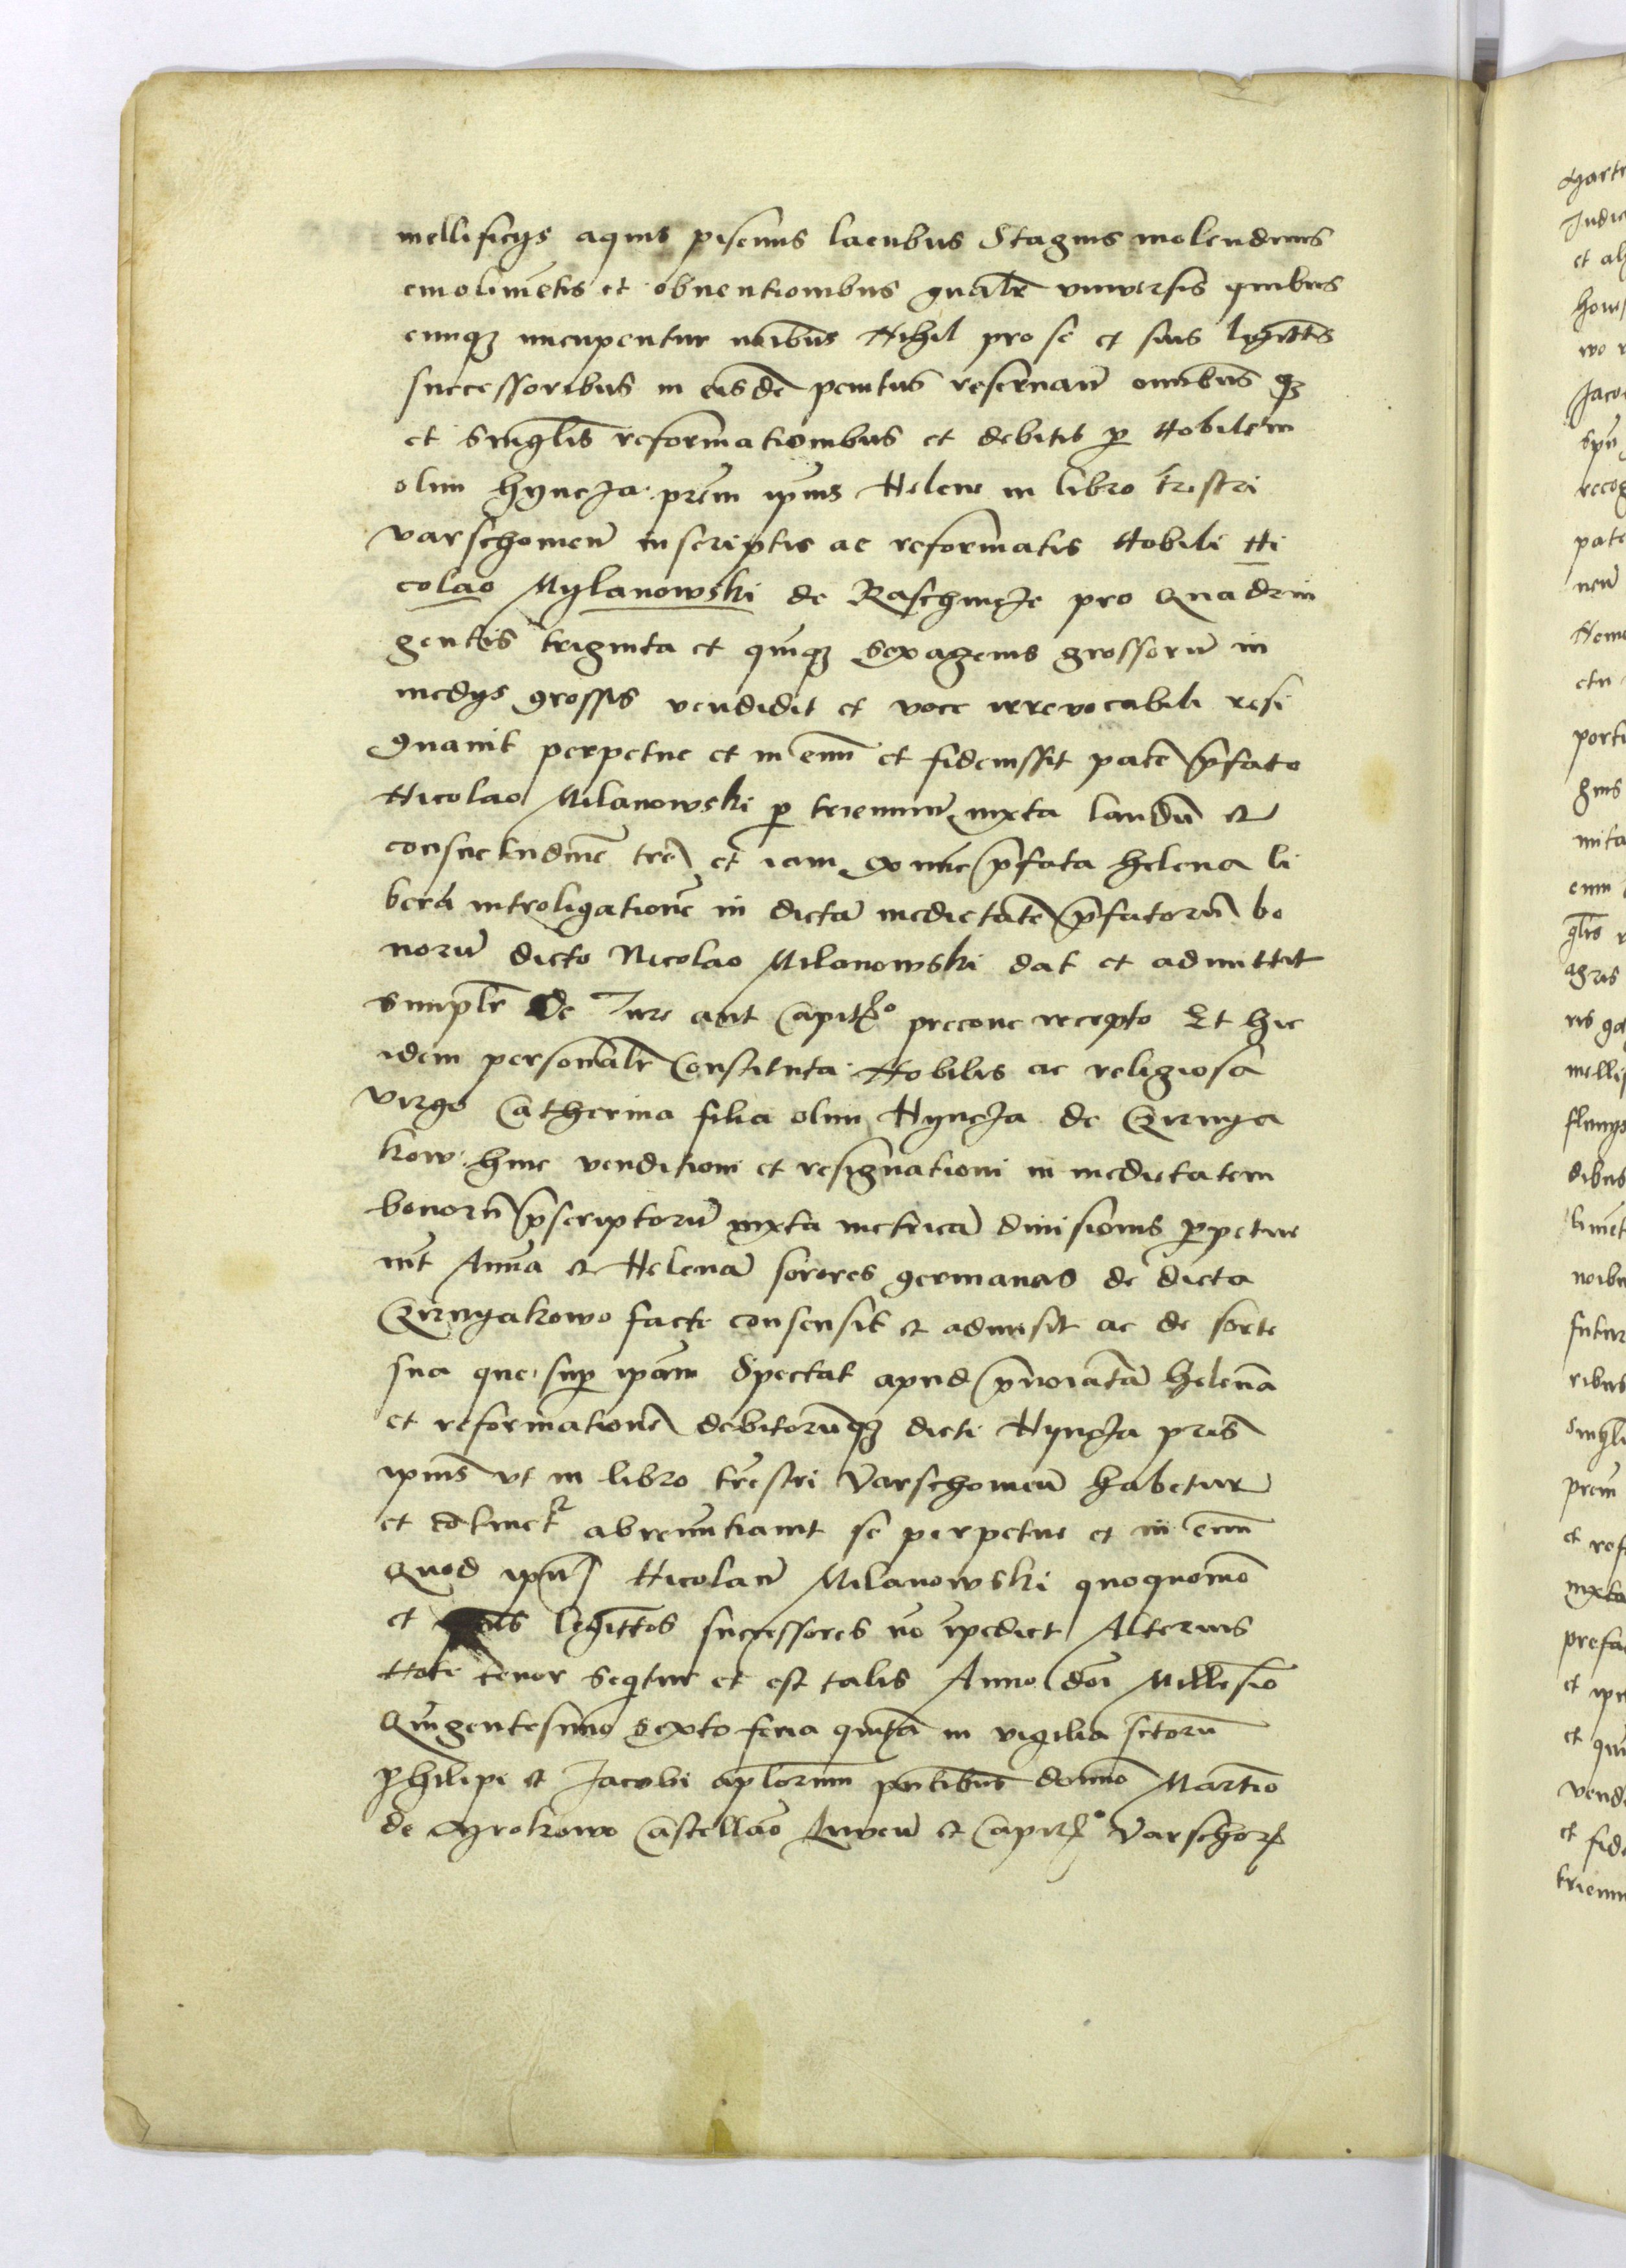 mellificijs aquis piscinis lacubus Stagnis molendinis
emolimētis et obuentionibus gnālr vniuersis quibus
cunqz nucupentur noībus Nihil pro se et suis legitīs
successoribus in eisdē penitus reseruan̄ omībus qz
et singlīs reformationibus et debitis p Nobilem
olim Hyncza prem ipīus Helene in libro trestri
varschouien̄ inscriptis ac reformatis Nobili Ni
colao Mylanowski de Raschincze pro Quadrin
gentis triginta et quīqz Sexagenis grossorū in
medijs grossis vendidit et voce irreuocabili resi
gnauit perpetue et in eum̄ et fideiussit patē p̄fato
Nicolao Milanowski p trienniū iuxta laudū et
consuetudinē trē et iam ex nūc p̄fata helena li
berā introligationē in dictā medietatē p̄fatorū bo
norū dicto Nicolao Milanowski dat et admittit
simplr̄ De Jure aut Capitō precone recepto Et hic
idem personalr̄ Constituta Nobilis ac religiosa
virgo Catherina filia olim Hyncza de Czirnya
kow huic venditioni et resignationi in medietatem
bonorū p̄scriptorū iuxta metricā diuisionis ppetue
int Annā et Helenā sorores germanas de dicta
Czirnyakowo facte consensit et admisit ac de sorte
sua que sup ipām Spectat apud p̄noiatā helenā
et reformationē debitorūqz dicti Hyncza pris
ipīus vt in libro trestri Varschouien̄ habetur
et cōtinetr abrenuntiauit se perpetue et in eum̄
Quod ipm̄ Nicolaū Milanowski quoquomō
et legittos successores nō īpediet Alterius
Note tenor Seqtur et est talis Anno dnī Millesīo
Quīgentesimo Sexto feria quīta in vigilia sctorū
Philipi et Jacobi aplorum pntibus domīo Martīo
de Oyrzkowo Castellāo Liwen̄ et Capitō Varschor